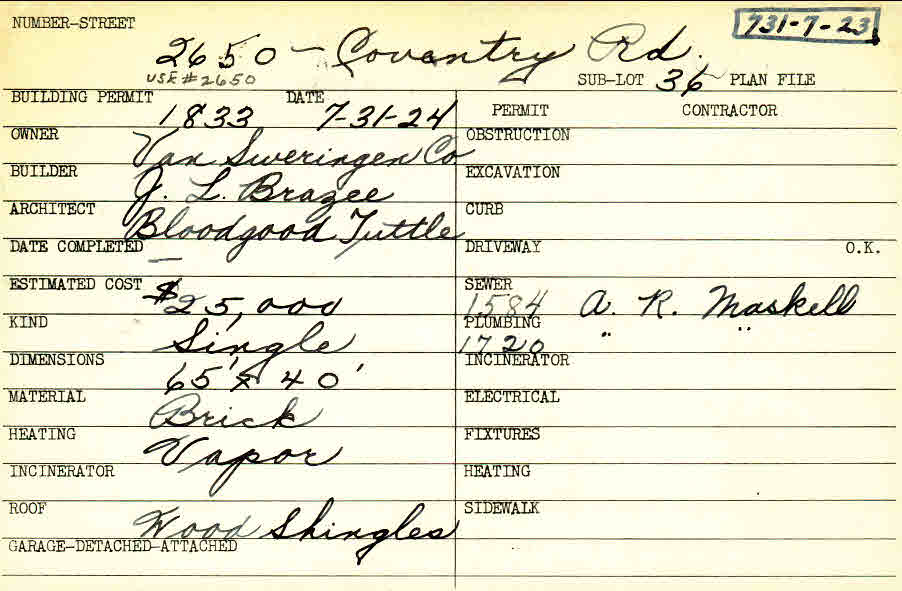 NUMBER-STREET
731-7-23
2650 - Coventry Rd.
USE #2650
SUB-LOT 36 PLAN FILE
BUILDING PERMIT DATE
1833 7-31-24
PERMIT CONTRACTOR
OWNER
Van Sweringen Co
OBSTRUCTION
BUILDER
J. L. Brazee
EXCAVATION
ARCHITECT
Bloodgood Tuttle
CURB
DATE COMPLETED
—
DRIVEWAY O.K.
ESTIMATED COST
$25,000
SEWER
1584 A. R. Maskell
KIND
Single
PLUMBING
1720 " "
DIMENSIONS
65' x 40'
INCINERATOR
MATERIAL
Brick
ELECTRICAL
HEATING
Vapor
FIXTURES
INCINERATOR
HEATING
ROOF
Wood Shingles
SIDEWALK
GARAGE-DETACHED-ATTACHED